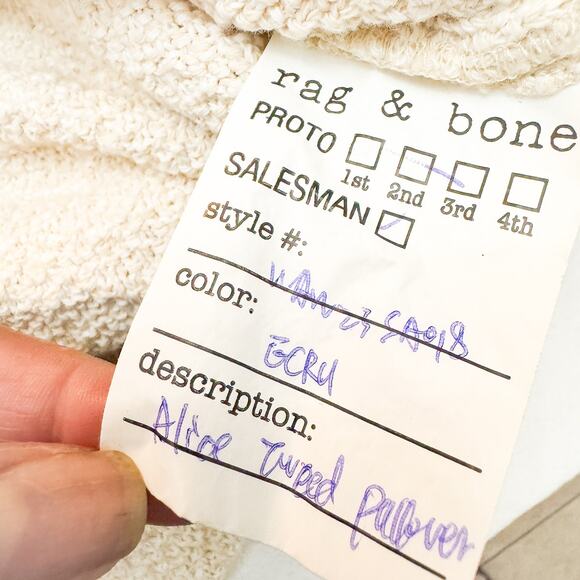 rag & bone
PROTO
1st 2nd 3rd 4th
SALESMAN
style #:
color:
ECRU
description:
Alice Tweed Pullover